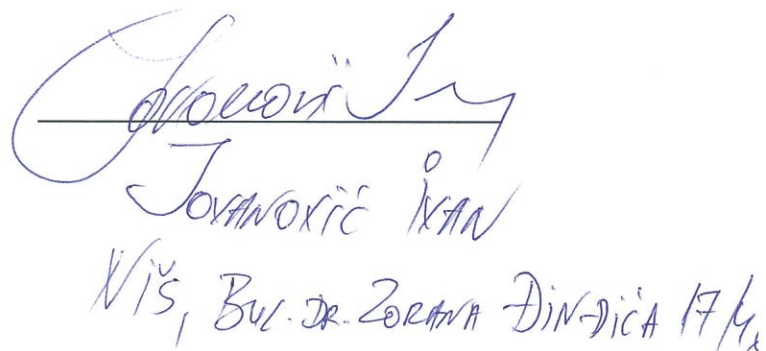 Jovanović Ivan
JOVANOVIĆ IVAN
NIŠ, BUL. DR. ZORANA ĐINĐIĆA 17/4.